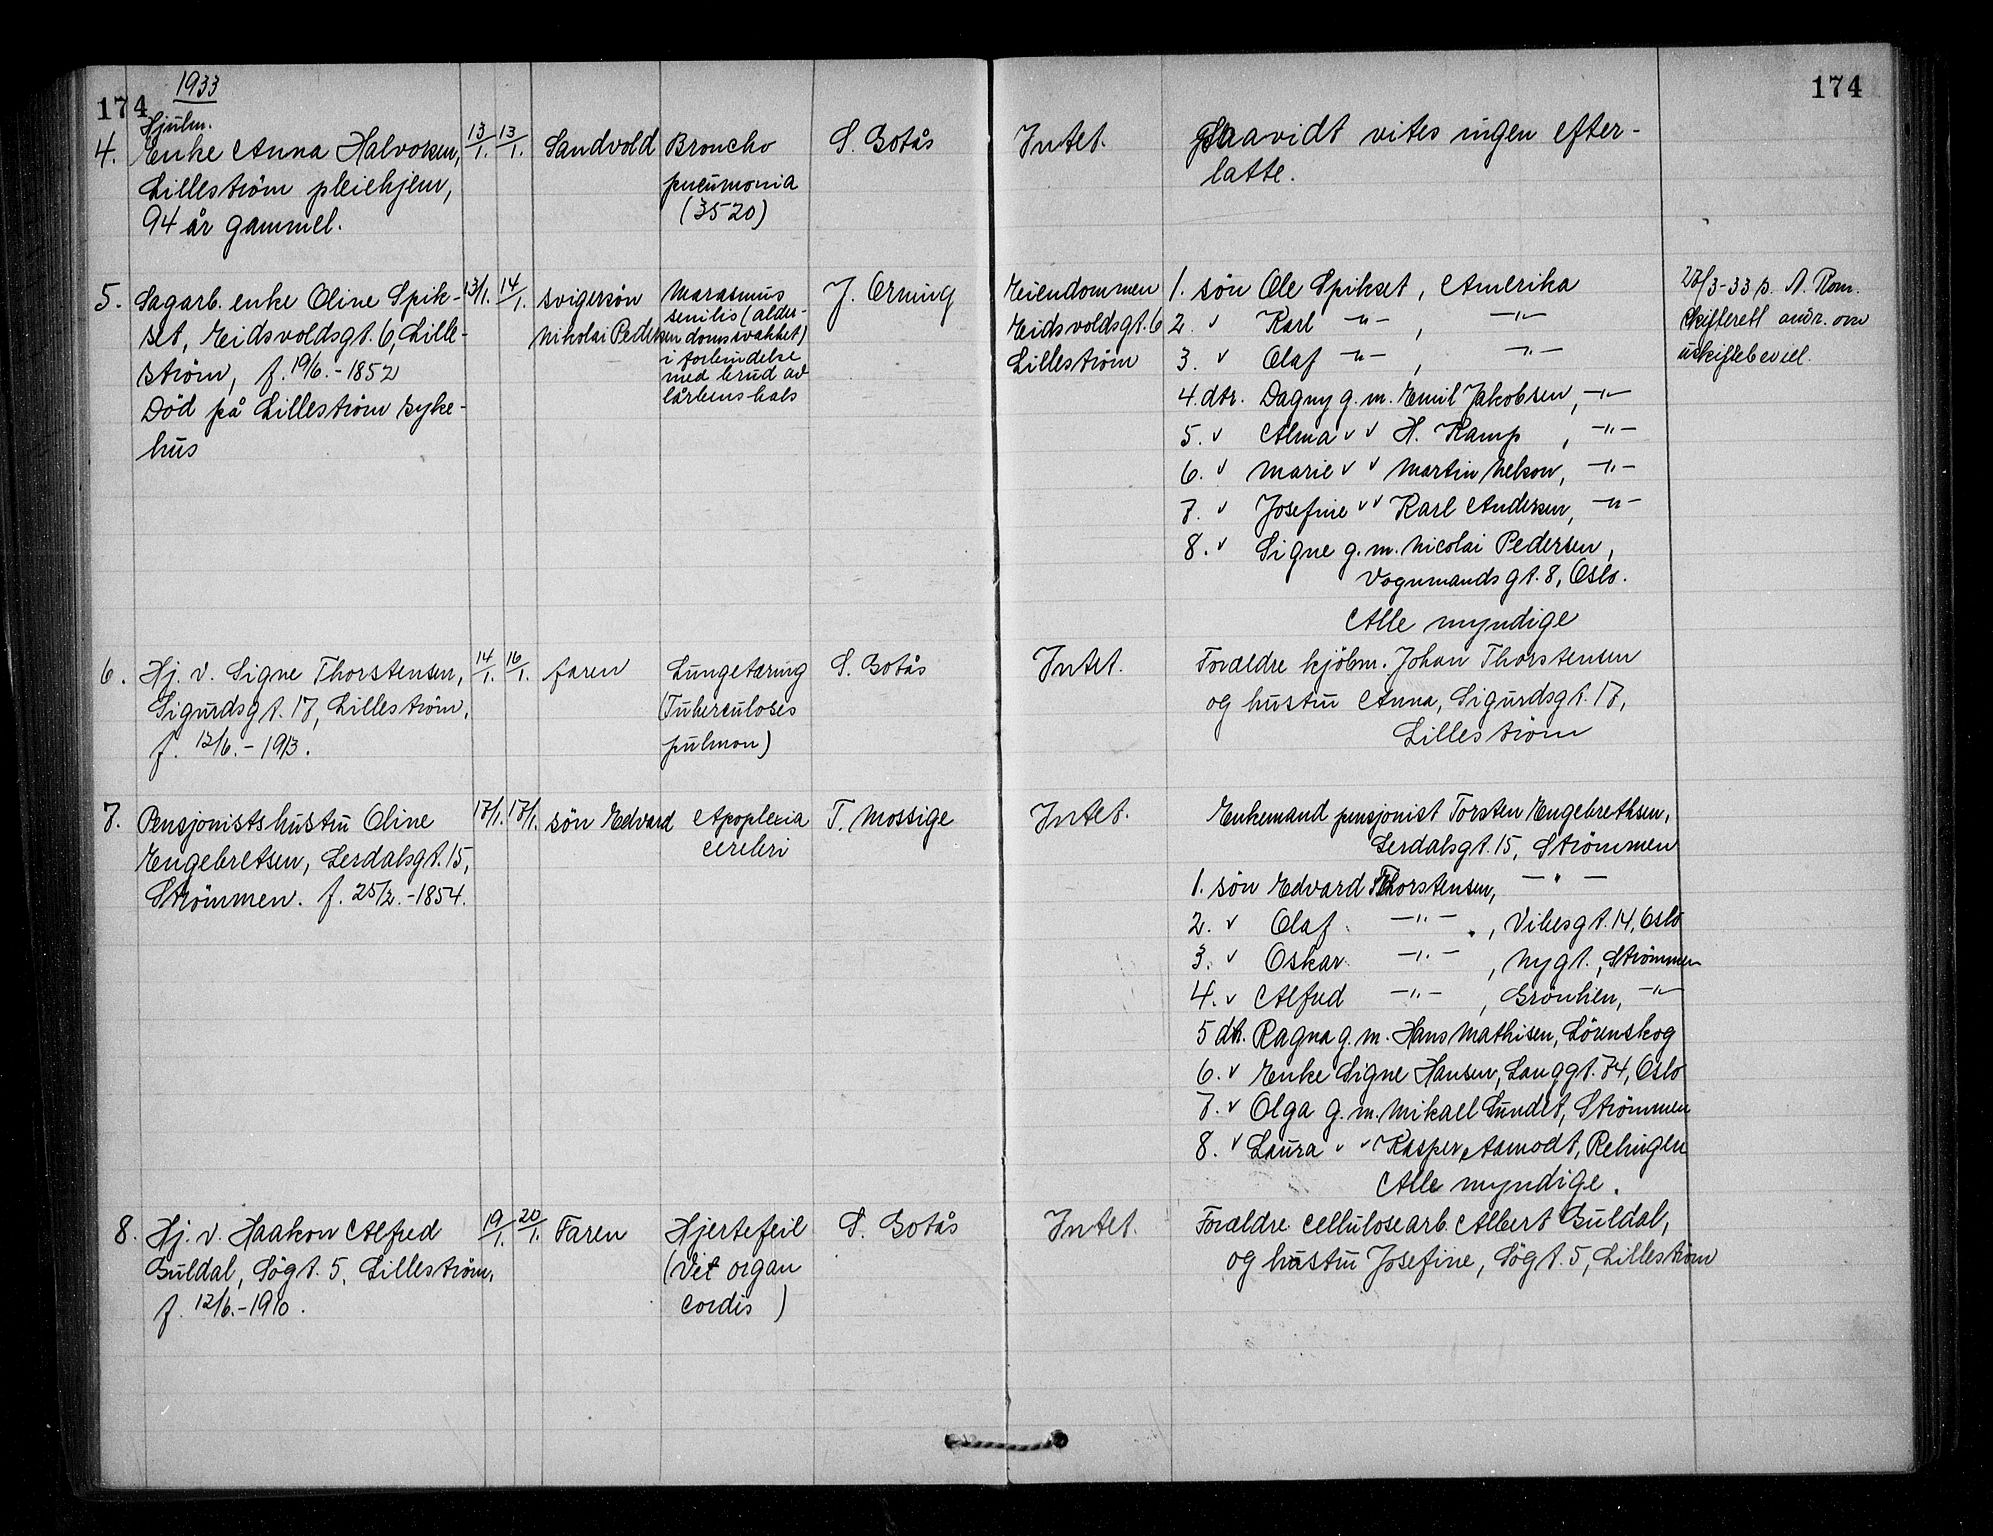 1933
174
174
Hjulm.
4. Enke Anna Halvorsen, 13/1. 13/1. Sandvold Broncho S. Gotås Intet. Saavidt vites ingen efter-
Lilleström pleiehjem, pneumonia latte.
94 år gammel. (3520)
5. Sagarb. enke Oline Spik- 13/1. 14/1. svigersön Marasmus J. Orning Eiendommen 1. sön Ole Spikset, Amerika
set, Eidsvoldsgt. 6, Lille- Nikolai Pedersen senilis (alder- Eidsvoldsgt. 6 2. v Karl -"-, -"-
ström, f. 19/6.-1852 domssvakhet) Lilleström 3. v Olaf -"-, -"-
Död på Lilleström syke- i forbindelse 4. dtr. Dagny g.m. Emil Jakobsen, -"-
hus med brud av 5. v Alma v v H. Kamp, -"-
lårbenshals 6. v Marie v v Martin Nelson, -"-
7. v Josefine v v Karl Andersen, -"-
8. v Signe g.m. Nicolai Pedersen,
Vognmandsgt. 8, Oslo.
Alle myndige
/3-33 N. Rom.
skifterett om
uskiftebevill.
6. Hj. v. Signe Thorstensen, 14/1. 16/1. faren Lungetæring S. Gotås Intet. Forældre kjöbm. Johan Thorstensen
Sigurdsgt. 17, Lilleström, (Tuberculosis og hustru Anna, Sigurdsgt. 17,
f. 12/6.-1913. pulmon) Lilleström
7. Pensjonistshustru Oline 17/1. 17/1. sön Edvard Apoplexia T. Mossige Intet. Enkemand pensjonist Torsten Engebrethsen,
Engebretsen, Lerdalsgt. 15, cerebri Lerdalsgt. 15, Strömmen
Strömmen. f. 25/2.-1854. 1. sön Edvard Thorstensen, -"-
2. v Olaf -"-, Vibesgt. 14, Oslo
3. v Oskar -"-, Nygt., Strömmen
4. v Alfred -"-, Grönlien, -"-
5 dtr. Ragna g.m. Hans Mathisen, Lörenskog
6. v Enke Signe Hansen, Langgt. 74, Oslo
7. v Olga g.m. Mikael Sundet, Strömmen
8. v Laura v v Kasper Aamodt, Relingen
Alle myndige.
8. Hj. v. Haakon Alfred 19/1. 20/1. Faren Hjertefeil S. Gotås Intet. Forældre cellulosearb. Albert Guldal,
Guldal, Sögt. 5, Lilleström, (Vit organ og hustru Josefine, Sögt. 5, Lilleström
f. 12/6.-1910. cordis)